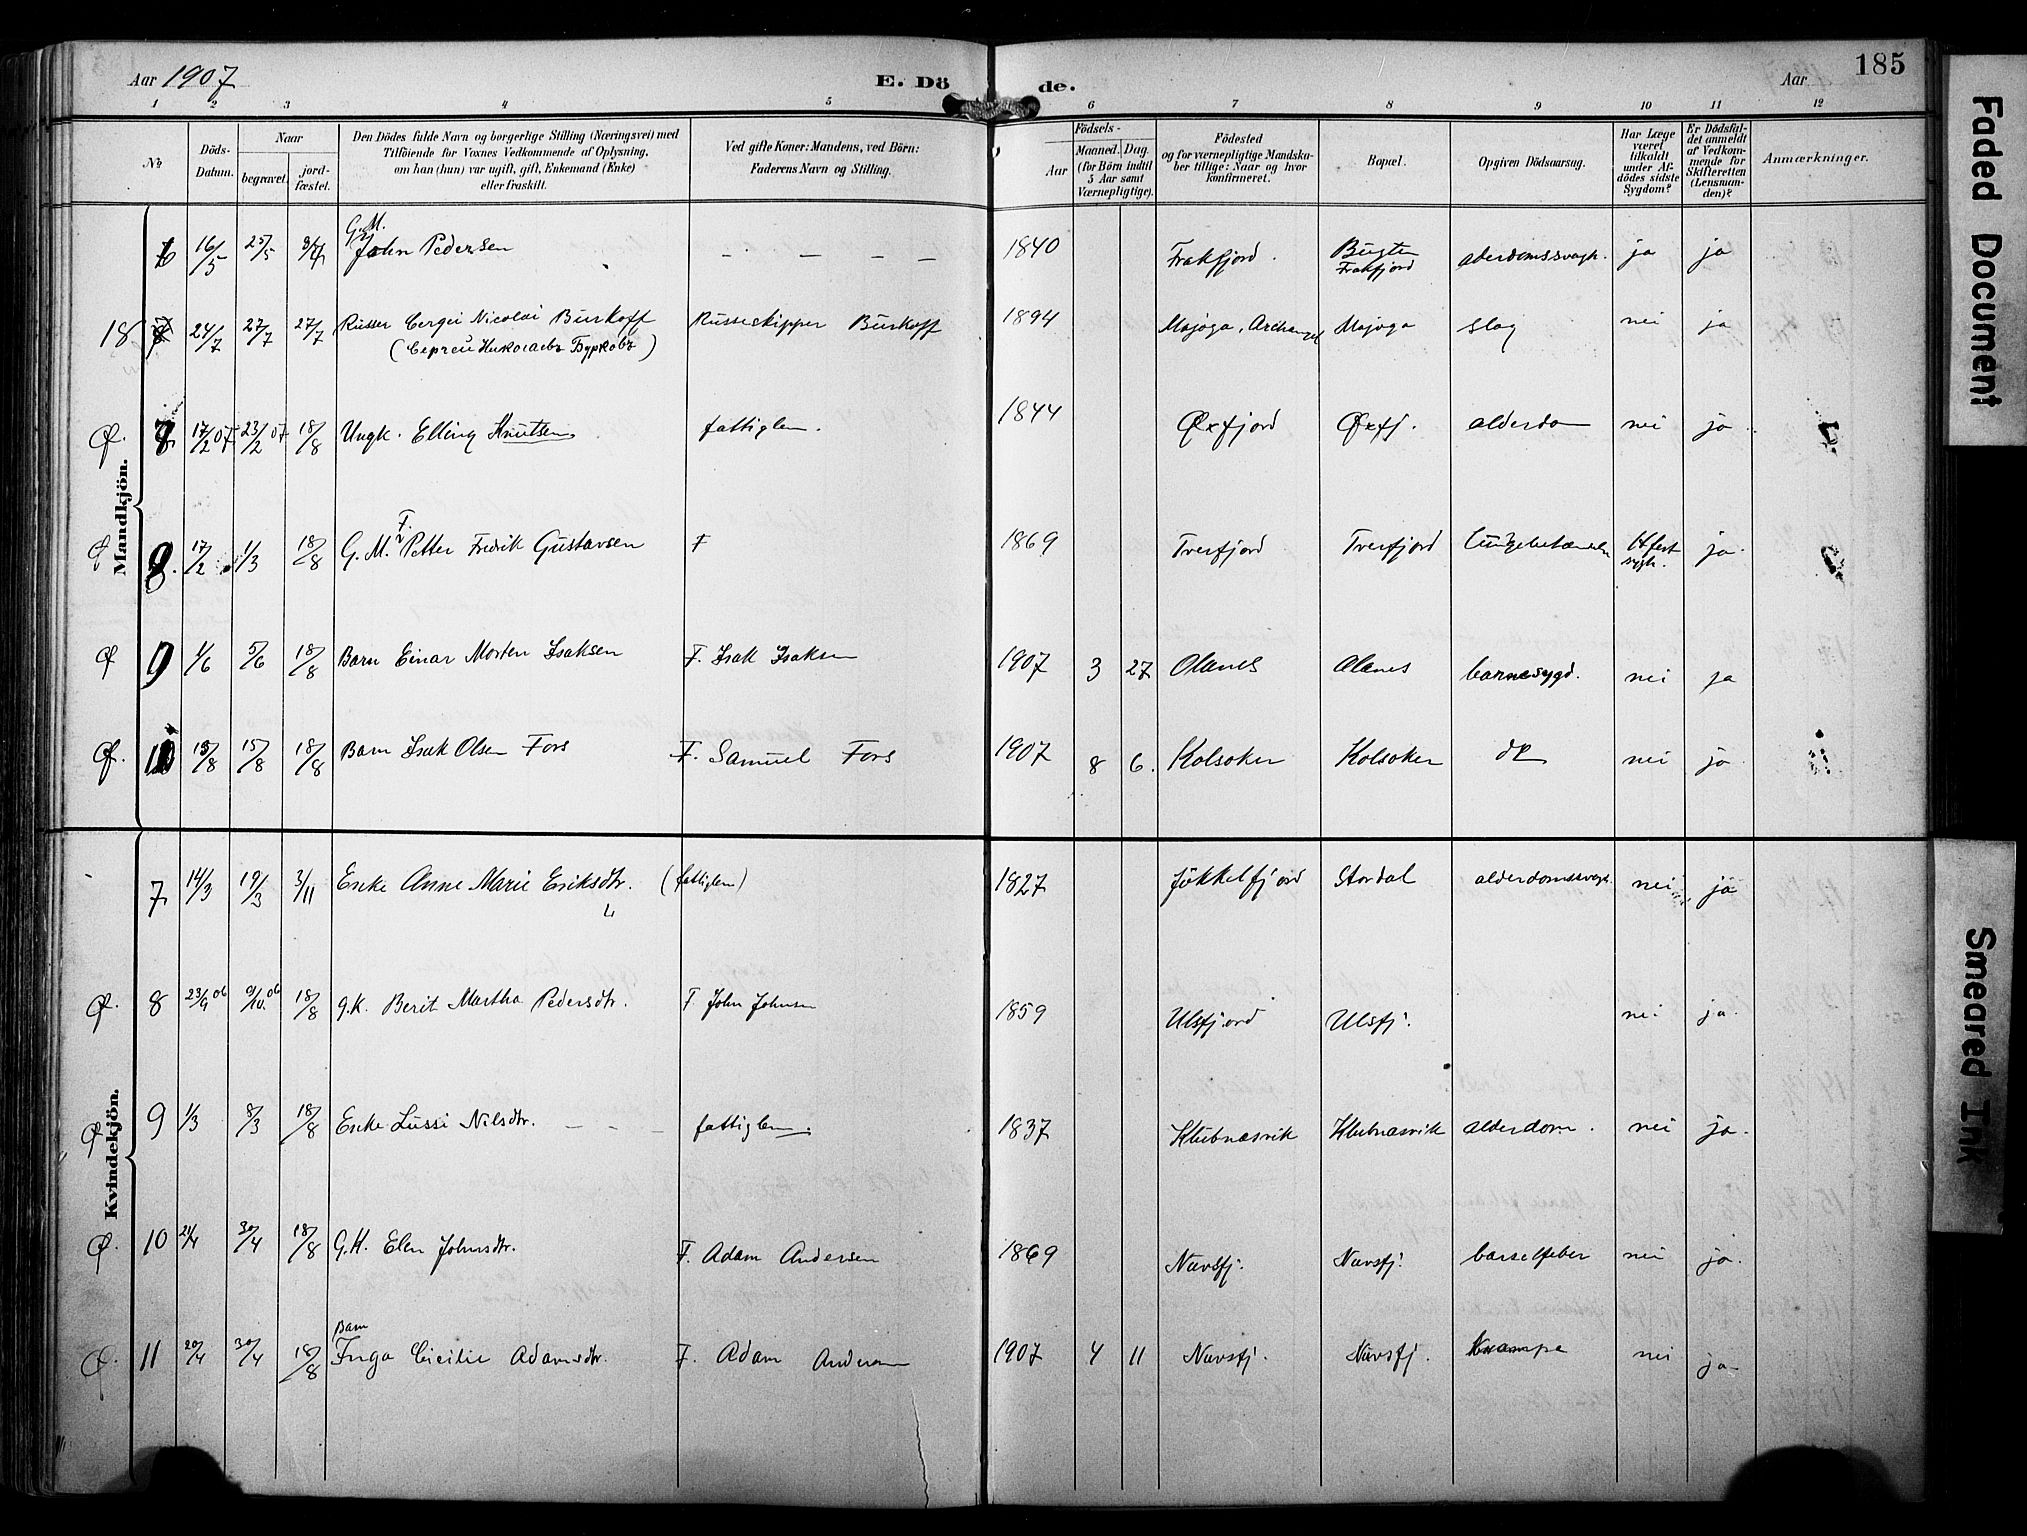 Aar 1907
E. Döde.
Aar
185
1 2 3 4 5 6 7 8 9 10 11 12
№
Döds-Datum.
Naar
begravet.
jord-fæstet.
Den Dödes fulde Navn og borgerlige Stilling (Næringsvei) med
Tilföiende for Voxnes Vedkommende af Oplysning,
om han (hun) var ugift, gift, Enkemand (Enke)
eller fraskilt.
Ved gifte Koner: Mandens, ved Börn:
Faderens Navn og Stilling.
Födsels-
Aar
Maaned. Dag.
(for Börn indtil
5 Aar samt
Værnepligtige).
Födested
og for værnepligtige Mandska-
ber tillige: Naar og hvor
konfirmeret.
Bopæl.
Opgiven Dödsaarsag.
Har Læge
været
tilkaldt
under Af-
dödes sidste
Sygdom?
Er Dödsfal-
det anmeldt
af Vedkom-
mende for
Skifteretten
(Lensman-
den)?
Anmærkninger.
Mandkjön.
6 16/5 25/5 G.M. John Pedersen — — — — 1840 Frakfjord. Bugten Frakfjord aderdomssvagh. ja ja
18 24/7 27/7 27/7 Russer Cergei Nicolai Burkoff Russeskipper Burkoff 1894 Majoga, Archangel Majoga slag nei ja
(Сергей Николаевъ Бурковъ)
Ø. 7 17/2 07 23/2 07 18/8 Ungk. Elling Knutsen fattiglem. 1844 Øxfjord Øxfj. alderdom nei ja.
Ø 8. 17/2 1/3 18/8 G.M. Petter Fredrik Gustavsen F 1869 Tverfjord Tverfjord Lungebetændelse ja.
Ø 9 1/6 5/6 18/8 Barn Einar Morten Isaksen F. Isak Isaksen 1907 3 27 Olanes Olanes barnesygd. nei ja
Ø. 10 13/8 15/8 18/8 Barn Isak Olsen Fors F. Samuel Fors 1907 8 6. Kolsoker Kolsoker do nei ja
Kvindekjön.
7 14/3 19/3 3/11 Enke Anne Marie Eriksdtr. (fattiglem) 1827 Jökkelfjord Stordal alderdomssvagh. nei ja
Ø. 8 23/9 06 18/8 g.K. Berit Martha Pedersdtr. F John Johnsen 1859 Ulsfjord Ulsfj. nei ja.
Ø 9 1/3 8/3 18/8 Enke Lussi Nilsdtr. — — — fattiglem. 1837 Klubnæsvik Klubnæsvik alderdom. nei ja.
Ø. 10 24/4 30/4 18/8 G.K. Elen Johnsdtr. F. Adam Andersen 1869 Nuvsfj. Nuvsfj. barselfeber nei ja.
Ø. 11 20/4 30/4 18/8 Barn Inga Cicilie Adamsdtr. F. Adam Andersen 1907 4 11 Nuvsfj. Nuvsfj. krampe nei ja
Faded Document
Smeared Ink